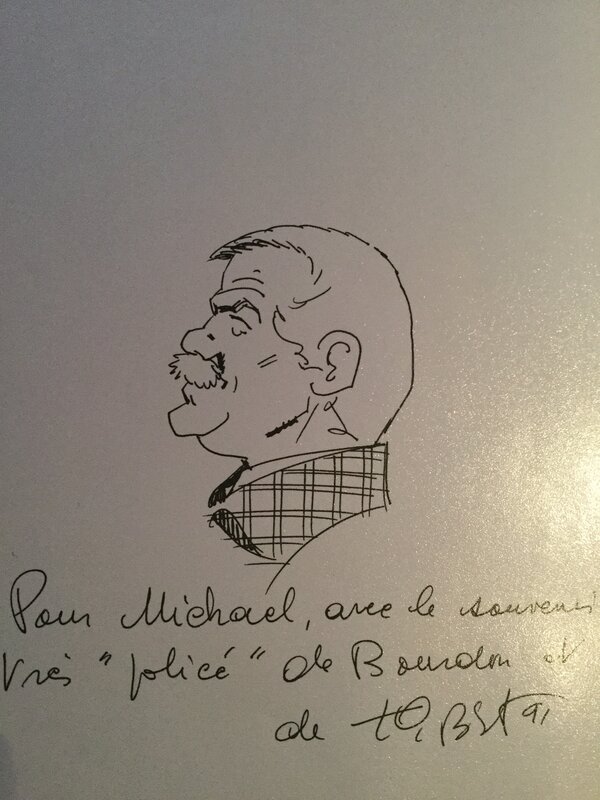 Pour Michael, avec le souvenir
très "policé" de Bourdon et
de